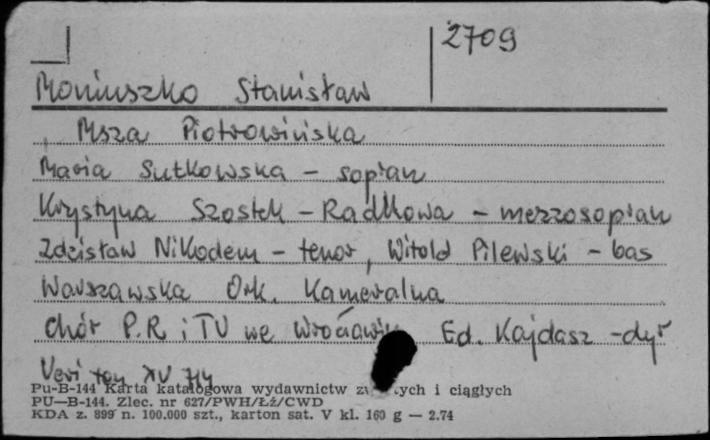 2709
Moniuszko Stanisław
Msza Piotrowińska
Maria Sutkowska - sopran
Krystyna Szostek-Radkowa - mezzosopran
Zdzisław Nikodem - tenor, Witold Pilewski - bas
Warszawska Ork. Kameralna
Chór P.R i TV we Wrocławiu Ed. Kajdasz - dyr
Veriton XV 714
Pu-B-144 Karta katalogowa wydawnictw i ciągłych
PU—B-144. Zlec. nr 627/PWH/Łż/CWD
KDA z. 899 n. 100.000 szt., karton sat. V kl. 160 g — 2.74